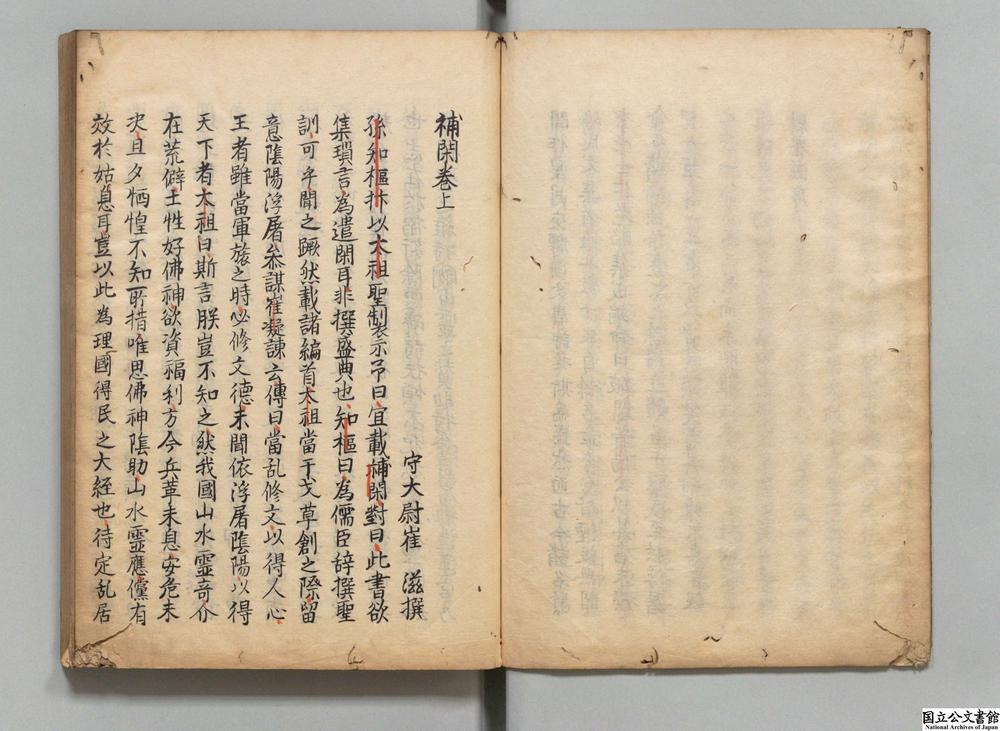 補閑巻上
守大尉崔　滋撰
孫知樞抃以太祖聖製示予曰宜載補閑對曰此書欲
集瑣言為遣閑耳非撰盛典也知樞曰為儒臣辞撰聖
訓可乎聞之蹶然載諸編首太祖當干戈草創之際留
意陰陽浮屠叅謀崔凝諫云傳曰當乱修文以得人心
王者雖當軍旅之時必修文德未聞依浮屠陰陽以得
天下者太祖曰斯言朕豈不知之然我國山水靈奇介
在荒僻土性好佛神欲資福利方今兵革未息安危未
决旦夕恓惶不知所措唯思佛神陰助山水靈應儻有
效於姑息耳豈以此為理國得民之大経也待定乱居
国立公文書館
National Archives of Japan